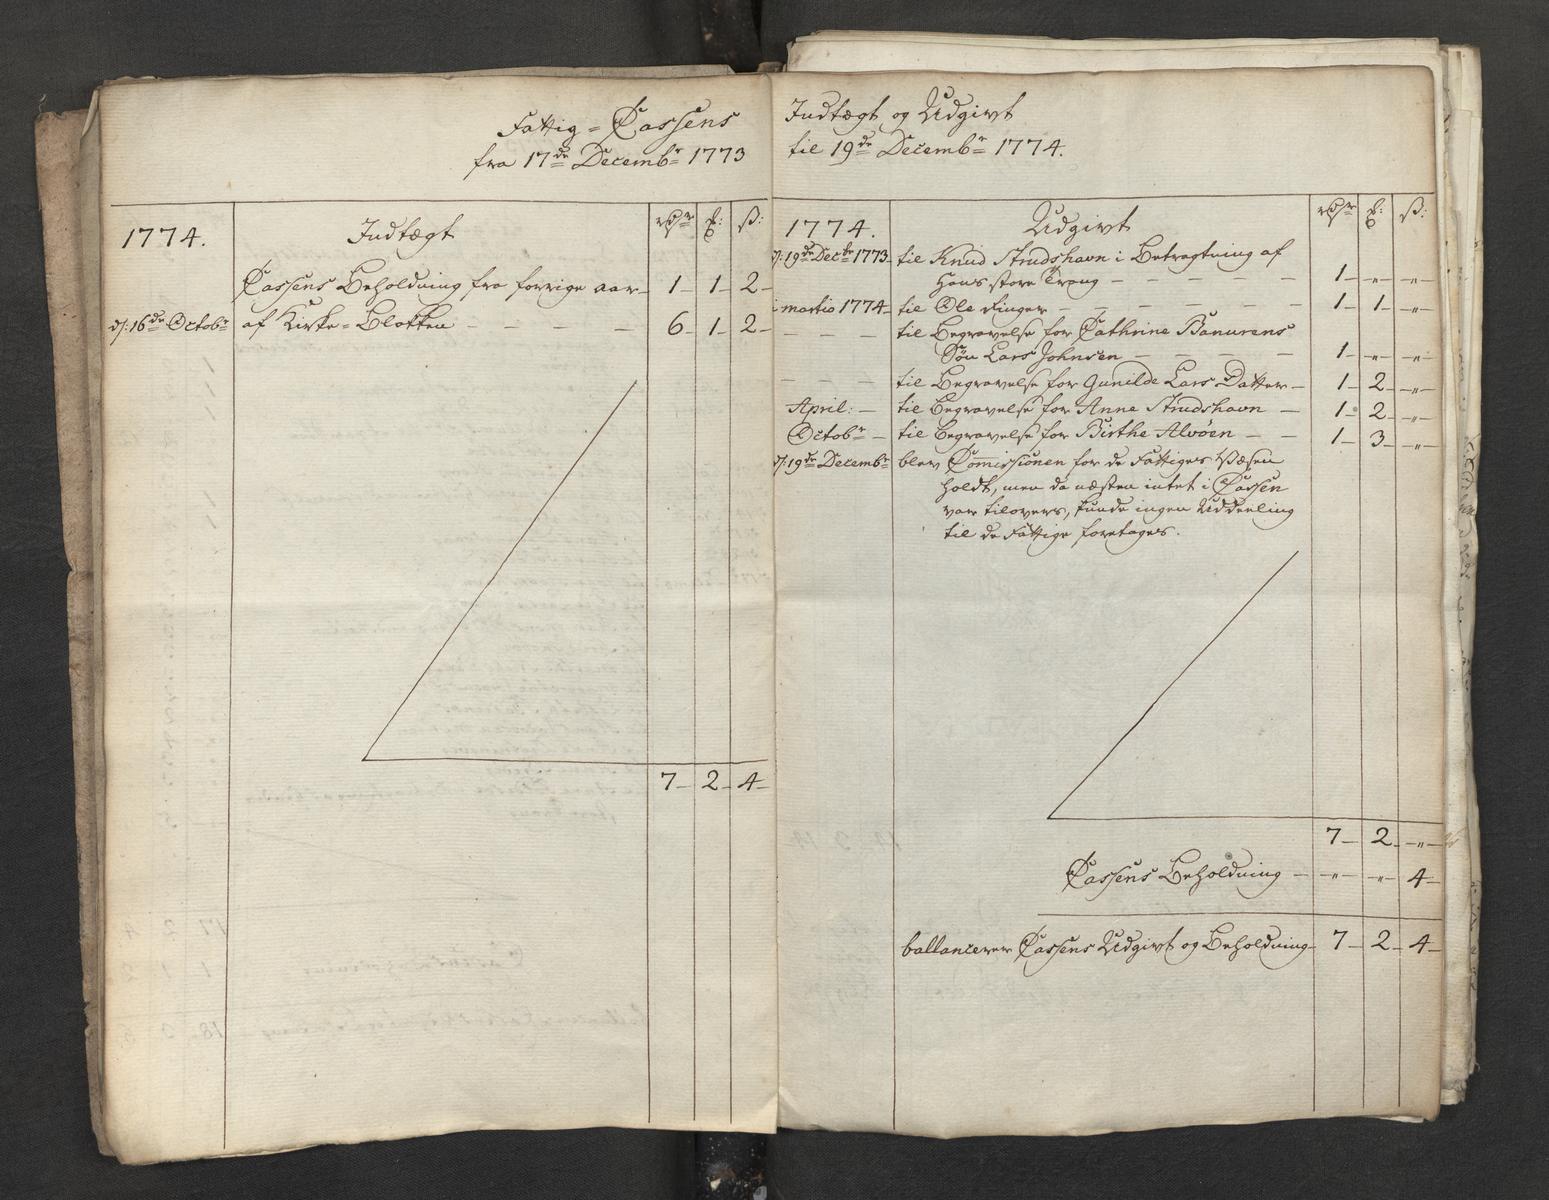 Fattig = Cassens
fra 17de Decembr 1773
1774. Indtægt rdr mk: ß:
Cassens Beholdning fra forrige aar 1 1 2
d: 16de Octobr af Kirke = Blokken 6 1 2
7 2 4
Indtægt og Udgivt
til 19de Decembr 1774.
1774. Udgivt rdr mk: ß:
d: 19de Decbr 1773 til Knud Strudshavn i Betragtning af
Hans store Trang 1 „ „
i martio 1774 til Ole Ringer 1 1 „
til Begravelse for Cathrine
Søn Lars Johnsen 1 „ „
til Begravelse for Gunilde Lars Datter 1 2 „
April: til Begravelse for Anne Strudshavn 1 2 „
Octobr til Begravelse for Birthe Alvøen 1 3 „
d: 19de Decembr blev Commissionen for de Fattiges Væsen
holdt, men da næsten intet i Cassen
var tilovers, kunde ingen Uddeeling
til de Fattige foretages.
7 2 „
Cassens Beholdning „ „ 4
ballancerer Cassens Udgivt og Beholdning 7 2 4